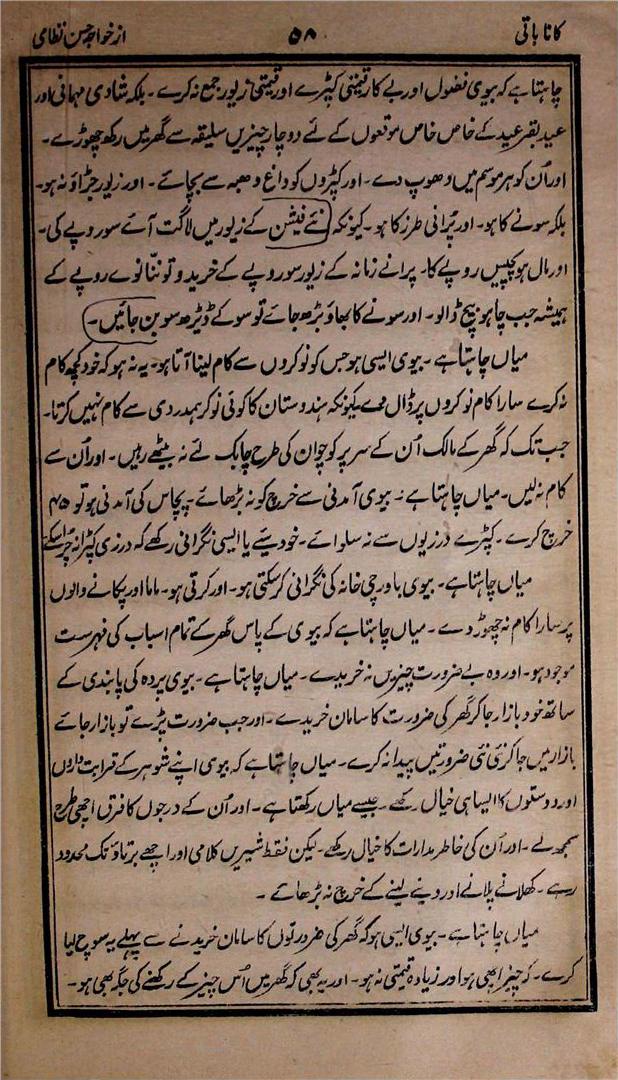 کانا باتی ۵۸ از خواجہ حسن نظامی
چاہتا ہے کہ بیوی فضول اور بے کار قیمتی کپڑے اور قیمتی زیور جمع نہ کرے۔ بلکہ شادی مہمانی اور
عید بقر عید کے خاص خاص موقعوں کے لئے دوچار چیزیں سلیقہ سے گھر میں رکھ چھوڑے۔
اور اُن کو ہر موسم میں دھوپ دے۔ اور کپڑوں کو داغ دھبہ سے بچائے۔ اور زیور جڑاؤ نہ ہو۔
بلکہ سونے کا ہو۔ اور پرانی طرز کا ہو۔ کیونکہ نئے فیشن کے زیور میں لاگت آئے سو روپے کی۔
اور مال ہو پچیس روپے کا۔ پرانے زمانہ کے زیور سو روپے کے خریدو تو ننانوے روپے کے
ہمیشہ جب چاہو بیچ ڈالو۔ اور سونے کا بھاؤ بڑھ جائے تو سو کے ڈیڑھ سو بن جائیں۔
میاں چاہتا ہے۔ بیوی ایسی ہو جس کو نوکروں سے کام لینا آتا ہو۔ یہ نہ ہو کہ خود کچھ کام
نہ کرے سارا کام نوکروں پر ڈال دے کیونکہ ہندوستان کا کوئی نوکر ہمدردی سے کام نہیں کرتا۔
جب تک کہ گھر کے مالک اُن کے سر پر کوچوان کی طرح چابک لئے نہ بیٹھے رہیں۔ اور اُن سے
کام نہ لیں۔ میاں چاہتا ہے۔ بیوی آمدنی سے خرچ کو نہ بڑھائے۔ پچاس کی آمدنی ہو تو ۴۵
خرچ کرے۔ کپڑے درزیوں سے نہ سلوائے۔ خود سیئے یا ایسی نگرانی رکھے کہ درزی کپڑا نہ چرا سکے
میاں چاہتا ہے۔ بیوی باورچی خانہ کی نگرانی کر سکتی ہو۔ اور کرتی ہو۔ ماما اور پکانے والوں
پر سارا کام نہ چھوڑ دے۔ میاں چاہتا ہے کہ بیوی کے پاس گھر کے تمام اسباب کی فہرست
موجود ہو۔ اور وہ بے ضرورت چیزیں نہ خریدے۔ میاں چاہتا ہے۔ بیوی پردہ کی پابندی کے
ساتھ خود بازار جا کر گھر کی ضرورت کا سامان خریدے۔ اور جب ضرورت پڑے تو بازار جائے
بازار میں جا کر نئی نئی ضرورتیں پیدا نہ کرے۔ میاں چاہتا ہے کہ بیوی اپنے شوہر کے قرابت داروں
اور دوستوں کا ایسا ہی خیال رکھے۔ جیسے میاں رکھتا ہے۔ اور اُن کے درجوں کا فرق اچھی طرح
سمجھ لے۔ اور اُن کی خاطر مدارات کا خیال رکھے۔ لیکن فقط شیریں کلامی اور اچھے برتاؤ تک محدود
رہے۔ کھلانے پلانے اور دینے لینے کے خرچ نہ بڑھائے۔
میاں چاہتا ہے۔ بیوی ایسی ہو کہ گھر کی ضرورتوں کا سامان خریدنے سے پہلے یہ سوچ لیا
کرے۔ کہ چیز اچھی ہو اور زیادہ قیمتی نہ ہو۔ اور یہ بھی کہ گھر میں اُس چیز کے رکھنے کی جگہ بھی ہو۔